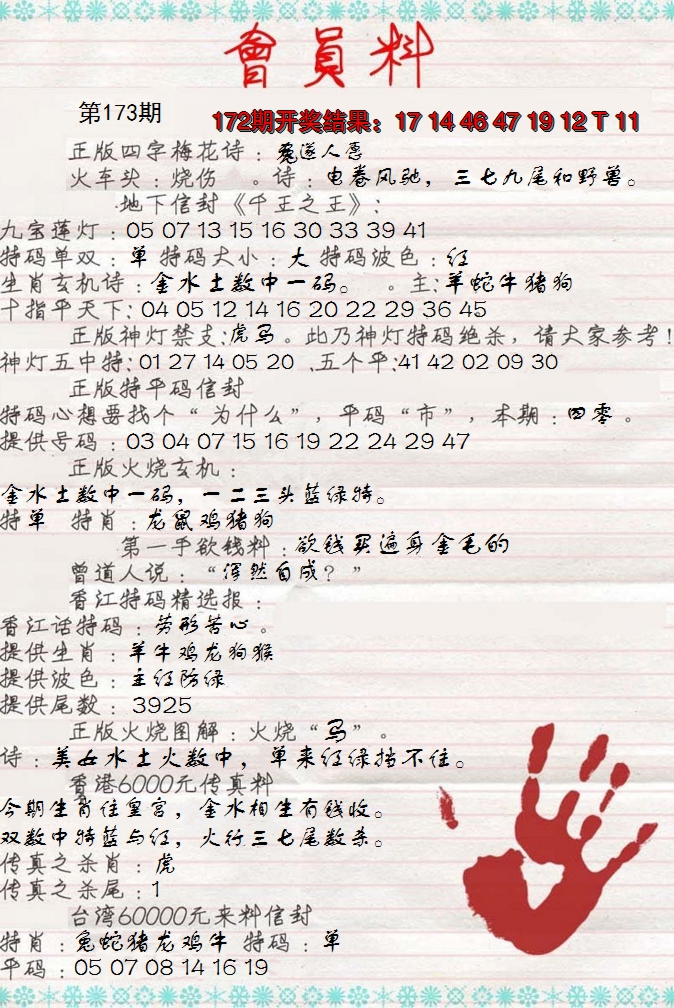 會員料
第173期
172期开奖结果：17 14 46 47 19 12 T 11
正版四字梅花诗：兔遂人愿
火车头：烧伤 。诗：电卷风驰，三七九尾和野兽。
地下信封《千王之王》：
九宝莲灯：05 07 13 15 16 30 33 39 41
特码单双：单 特码大小：大 特码波色：红
生肖玄机诗：金水土数中一码。 。主：羊蛇牛猪狗
十指平天下：04 05 12 14 16 20 22 29 36 45
正版神灯禁支：虎马。此乃神灯特码绝杀，请大家参考！
神灯五中特：01 27 14 05 20 .五个平：41 42 02 09 30
正版特平码信封
特码心想要找个“为什么”，平码“市”，本期：四零。
提供号码：03 04 07 15 16 19 22 24 29 47
正版火烧玄机：
金水土数中一码，一二三头蓝绿特。
特单 特肖：龙鼠鸡猪狗
第一手欲钱料：欲钱买遍身金毛的
曾道人说：“浑然自成？”
香江特码精选报：
香江话特码：劳形苦心。
提供生肖：羊牛鸡龙狗猴
提供波色：主红防绿
提供尾数：3925
正版火烧图解：火烧“马”。
诗：美女水土火数中，单来红绿挡不住。
香港6000元传真料
今期生肖住皇宫，金水相生有钱收。
双数中特蓝与红，火行三七尾数杀。
传真之杀肖：虎
传真之杀尾：1
台湾60000元来料信封
特肖：兔蛇猪龙鸡牛 特码：单
平码：05 07 08 14 16 19